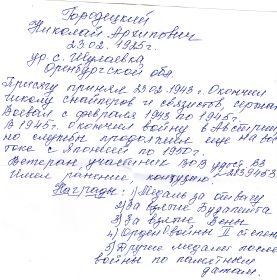 Городецкий
Николай Архипович
23.02.1925г.
ур. с. Шумаевка
Оренбургской обл.
Присягу принял 23.02.1943г. Окончил
школу снайперов и связистов, сержант
Воевал с февраля 1943 по 1945г.
В 1945г. окончил войну в Австрии,
но службу продолжил еще на Вос
токе с Японией по 1950г.
Ветеран, участник ВОВ удост. ВЗ
Имел ранение, контузию
Награды: 1) Медаль за отвагу
2) За взятие Будапешта
3) За взятие Вены
4) Орден войны II степени
5) Другие медали после
войны по памятным
датам.